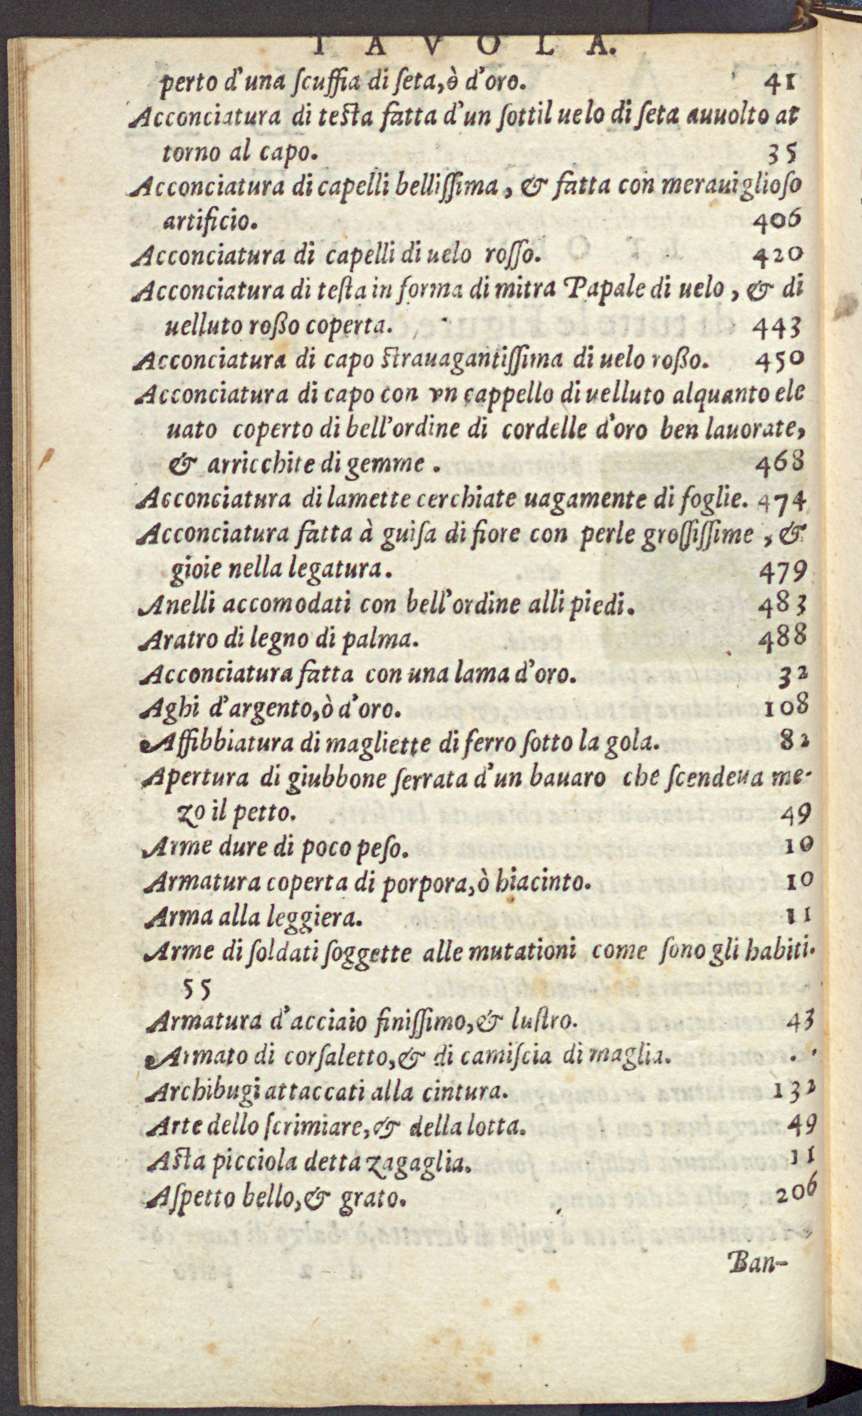 TAVOLA.
perto d'una ſcuffia di ſeta, ò d'oro. 41
Acconciatura di teſta fatta d'un ſottil uelo di ſeta auuolto at
torno al capo. 35
Acconciatura di capelli belliſſima, & fatta con merauiglioſo
artificio. 406
Acconciatura di capelli di uelo roſſo. 420
Acconciatura di teſta in forma di mitra Papale di uelo, & di
uelluto roßo coperta. 443
Acconciatura di capo ſtrauagantiſſima di uelo roßo. 450
Acconciatura di capo con vn cappello di velluto alquanto ele
uato coperto di bell'ordine di cordelle d'oro ben lauorate,
& arricchite di gemme. 468
Acconciatura di lamette cerchiate uagamente di foglie. 474
Acconciatura fatta à guiſa di fiore con perle groſſiſſime, &
gioie nella legatura. 479
Anelli accomodati con bell'ordine alli piedi. 483
Aratro di legno di palma. 488
Acconciatura fatta con una lama d'oro. 32
Aghi d'argento, ò d'oro. 108
Affibbiatura di magliette di ferro ſotto la gola. 82
Apertura di giubbone ſerrata d'un bauaro che ſcendeua me-
zo il petto. 49
Arme dure di poco peſo. 10
Armatura coperta di porpora, ò hiacinto. 10
Arma alla leggiera. 11
Arme di ſoldati ſoggette alle mutationi come ſono gli habiti.
55
Armatura d'acciaio finiſſimo, & luſtro. 43
Armato di corſaletto, & di camiſcia di maglia.
Archibugi attaccati alla cintura. 132
Arte dello ſcrimiare, & della lotta. 49
Aſta picciola detta zagaglia. 11
Aſpetto bello, & grato. 206
Ban-